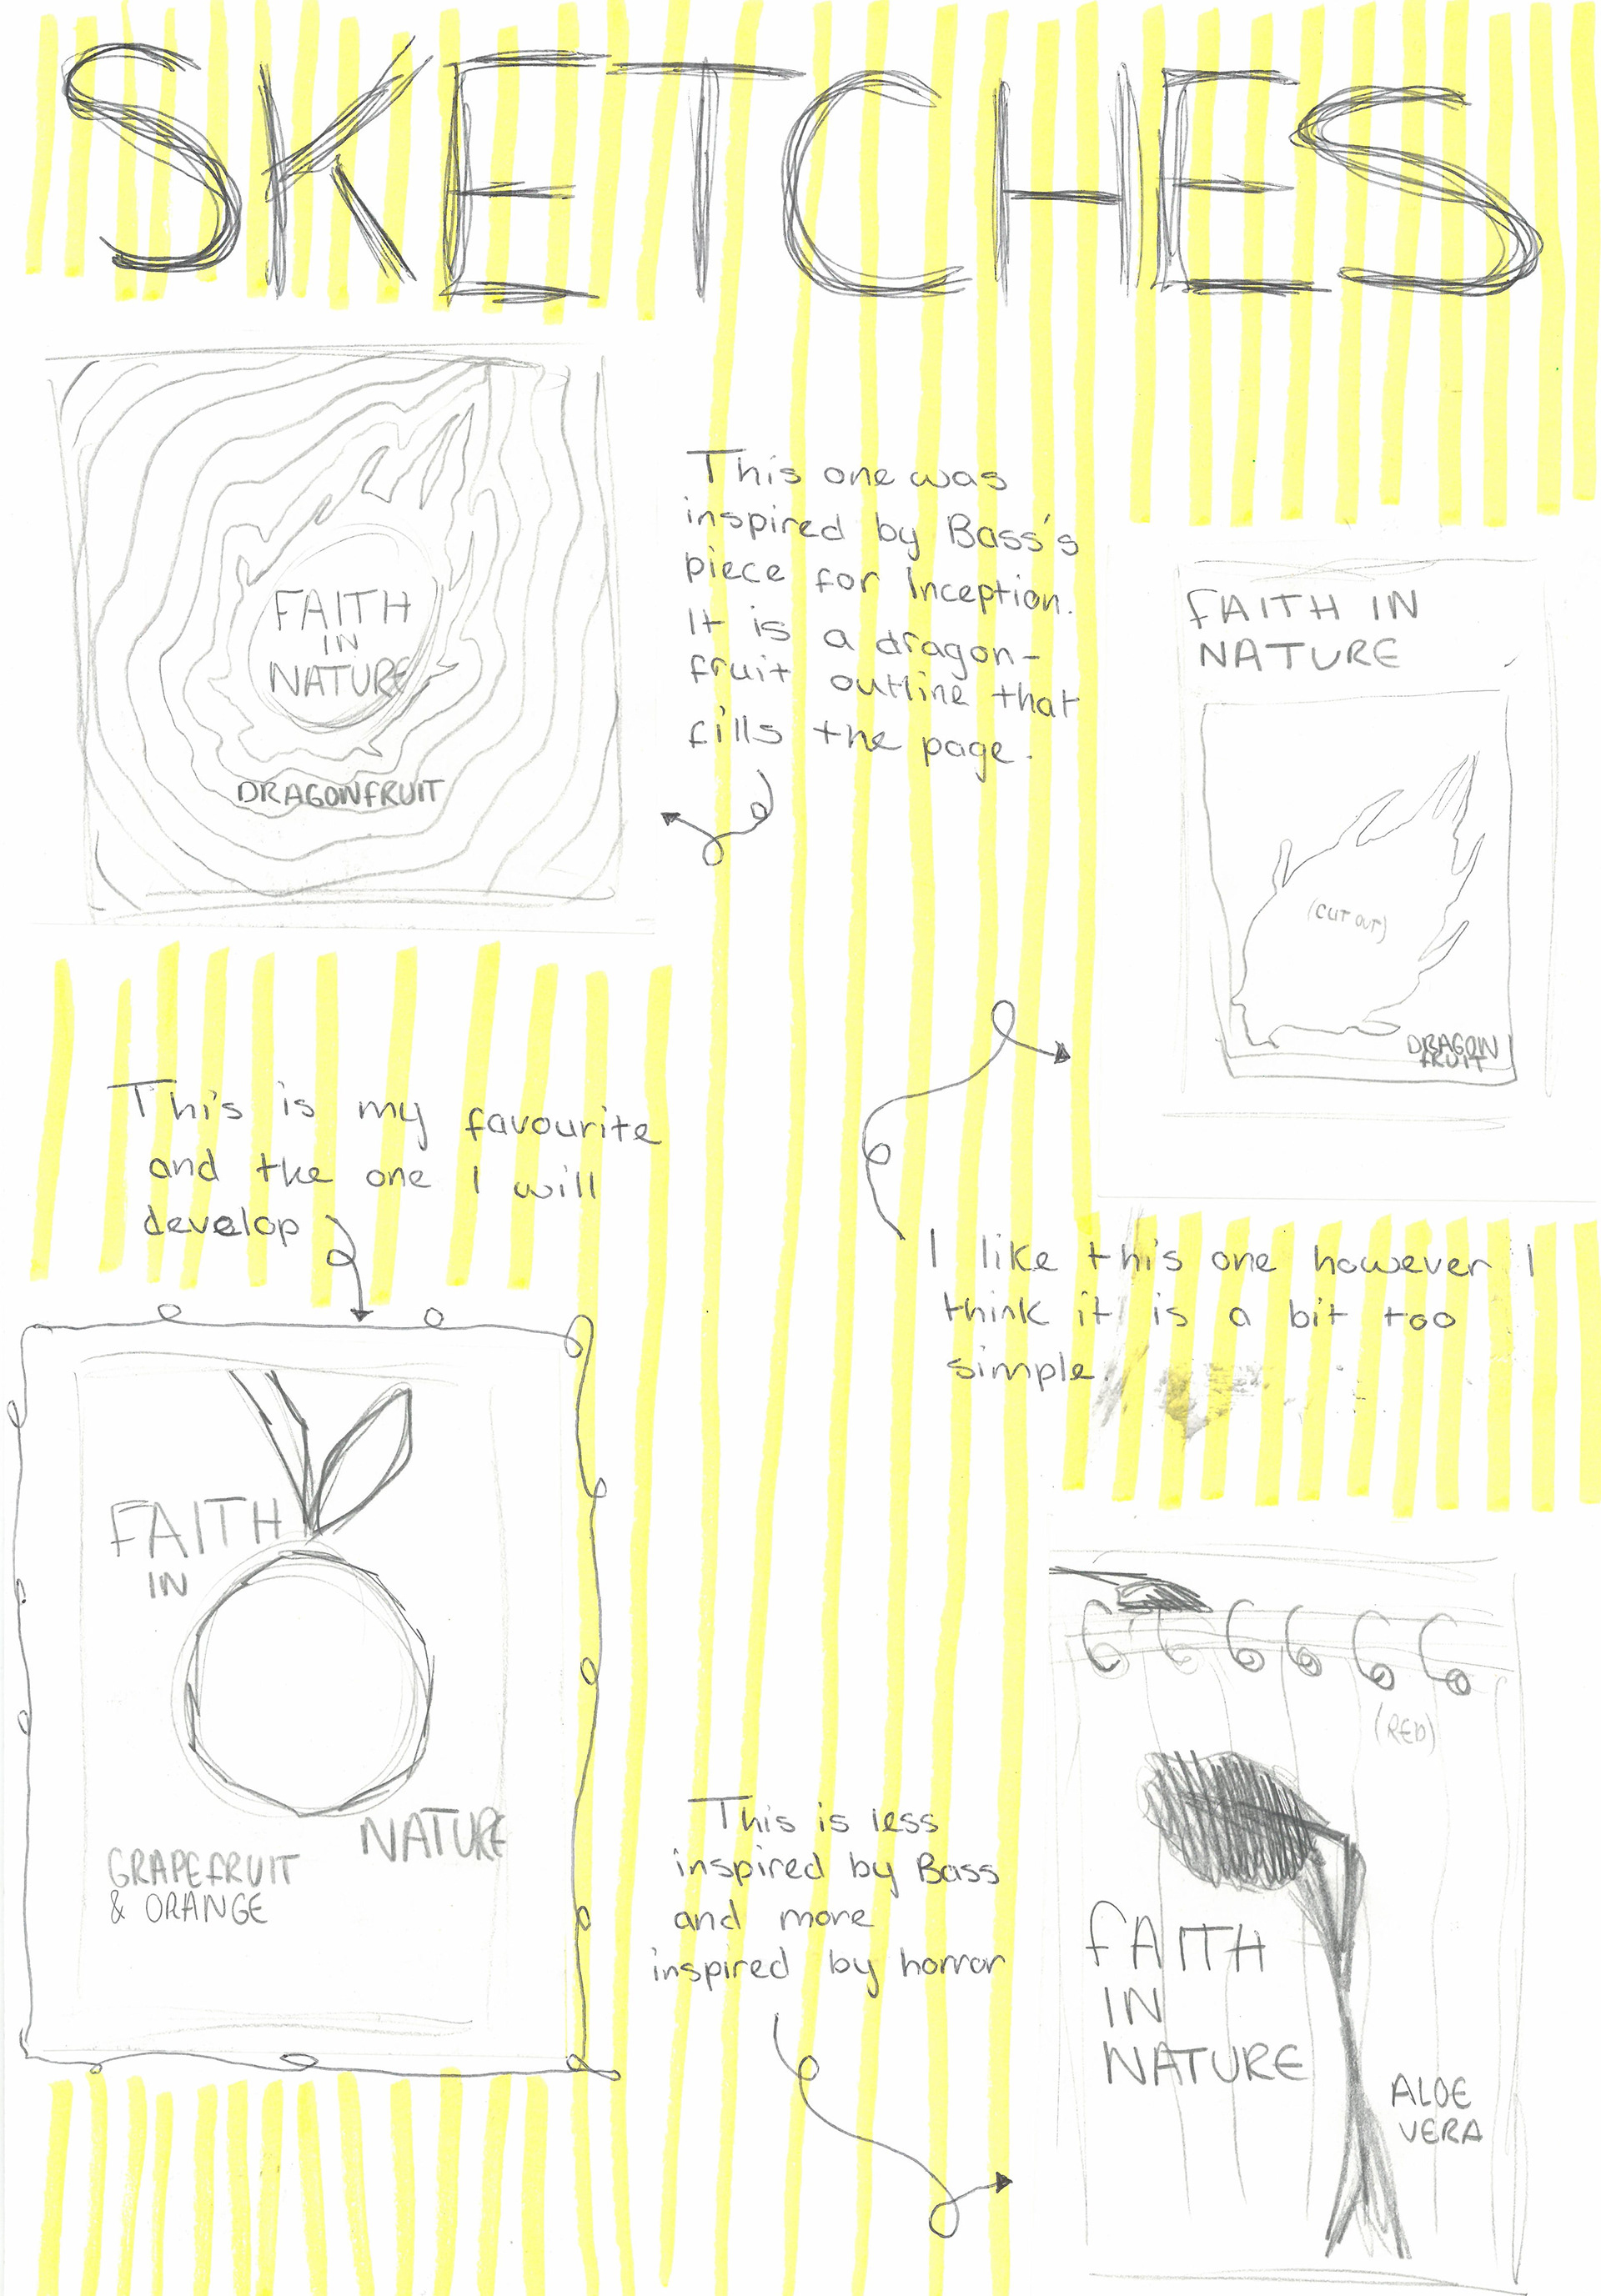 SKETCHES
FAITH
IN
NATURE
DRAGONFRUIT
This one was
inspired by Bass's
piece for Inception.
It is a dragon-
fruit outline that
fills the page.
FAITH IN
NATURE
(CUT OUT)
DRAGON
FRUIT
This is my favourite
and the one I will
develop
I like this one however I
think it is a bit too
simple.
FAITH
IN
NATURE
GRAPEFRUIT
& ORANGE
This is less
inspired by Bass
and more
inspired by horror
(RED)
FAITH
IN
NATURE
ALOE
VERA